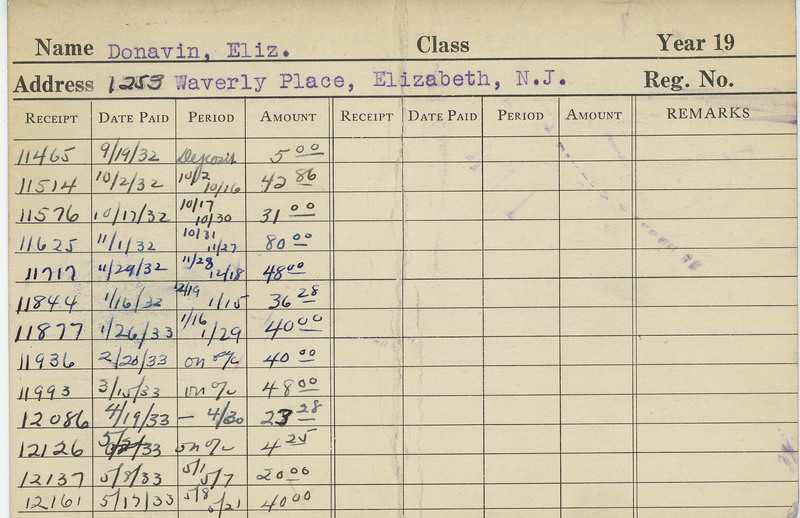 Name Donavin, Eliz. Class Year 19
Address 1253 Waverly Place, Elizabeth, N.J. Reg. No.
RECEIPT DATE PAID PERIOD AMOUNT RECEIPT DATE PAID PERIOD AMOUNT REMARKS
11465 9/19/32 Deposit 5 00
11514 10/2/32 10/2 10/16 42 86
11576 10/17/32 10/17 10/30 31 00
11625 11/1/32 10/31 11/27 80 00
11717 11/29/32 11/28 12/18 48 00
11844 1/16/32 12/19 1/15 36 28
11877 1/26/33 1/16 1/29 40 00
11936 2/20/33 on a/c 40 00
11993 3/15/33 on a/c 48 00
12086 4/19/33 — 4/30 23 28
12126 5/2/33 on a/c 4 25
12137 5/8/33 5/1 5/7 20 00
12161 5/17/33 5/8 5/21 40 00